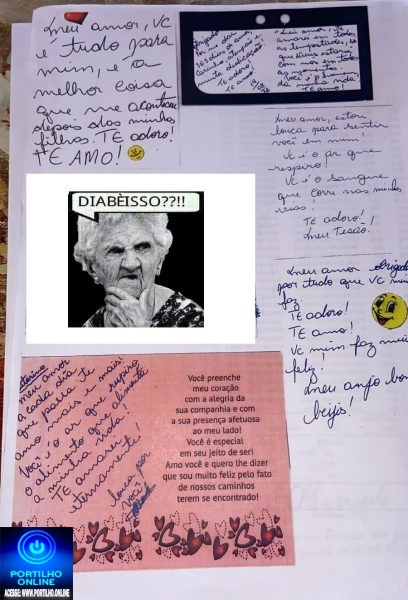 Meu amor, vc
é tudo para
mim, e a
melhor coisa
que me aconteceu
depois dos minhas
filhas. TE adoro!
TE AMO!
Obrigado
por me dar
365 dias de amor,
carinho, atenção e
muita dedicação!
TE adoro,
TE amo!
Meu amor, te
amarei em todos
as tempestades,
com nós em todos
TE amo!
Meu amor, estou
louca para sentir
você em mim!
Vc é o ar que
respiro!
Vc é o sangue
que corre nas minhas
veias!
TE adoro!
Meu Tesão!
DIABÈISSO??!!
Meu amor obrigada
por tudo que vc mim
faz.
TE adoro!
TE amo!
Vc mim faz muito
feliz!
Meu anjo bom
beijis!
meu amor
a cada dia
que passa te
amo mais e mais!
Você é o ar que respiro
o alimento que alimenta
a minha vida!
TE amarei
eternamente!
louca por
você
Você preenche
meu coração
com a alegria da
sua companhia e com
a sua presença afetuosa
ao meu lado!
Você é especial
em seu jeito de ser!
Amo você e quero lhe dizer
que sou muito feliz pelo fato
de nossos caminhos
terem se encontrado!
PORTILHO
ONLINE
ACESSE: WWW.PORTILHO.ONLINE